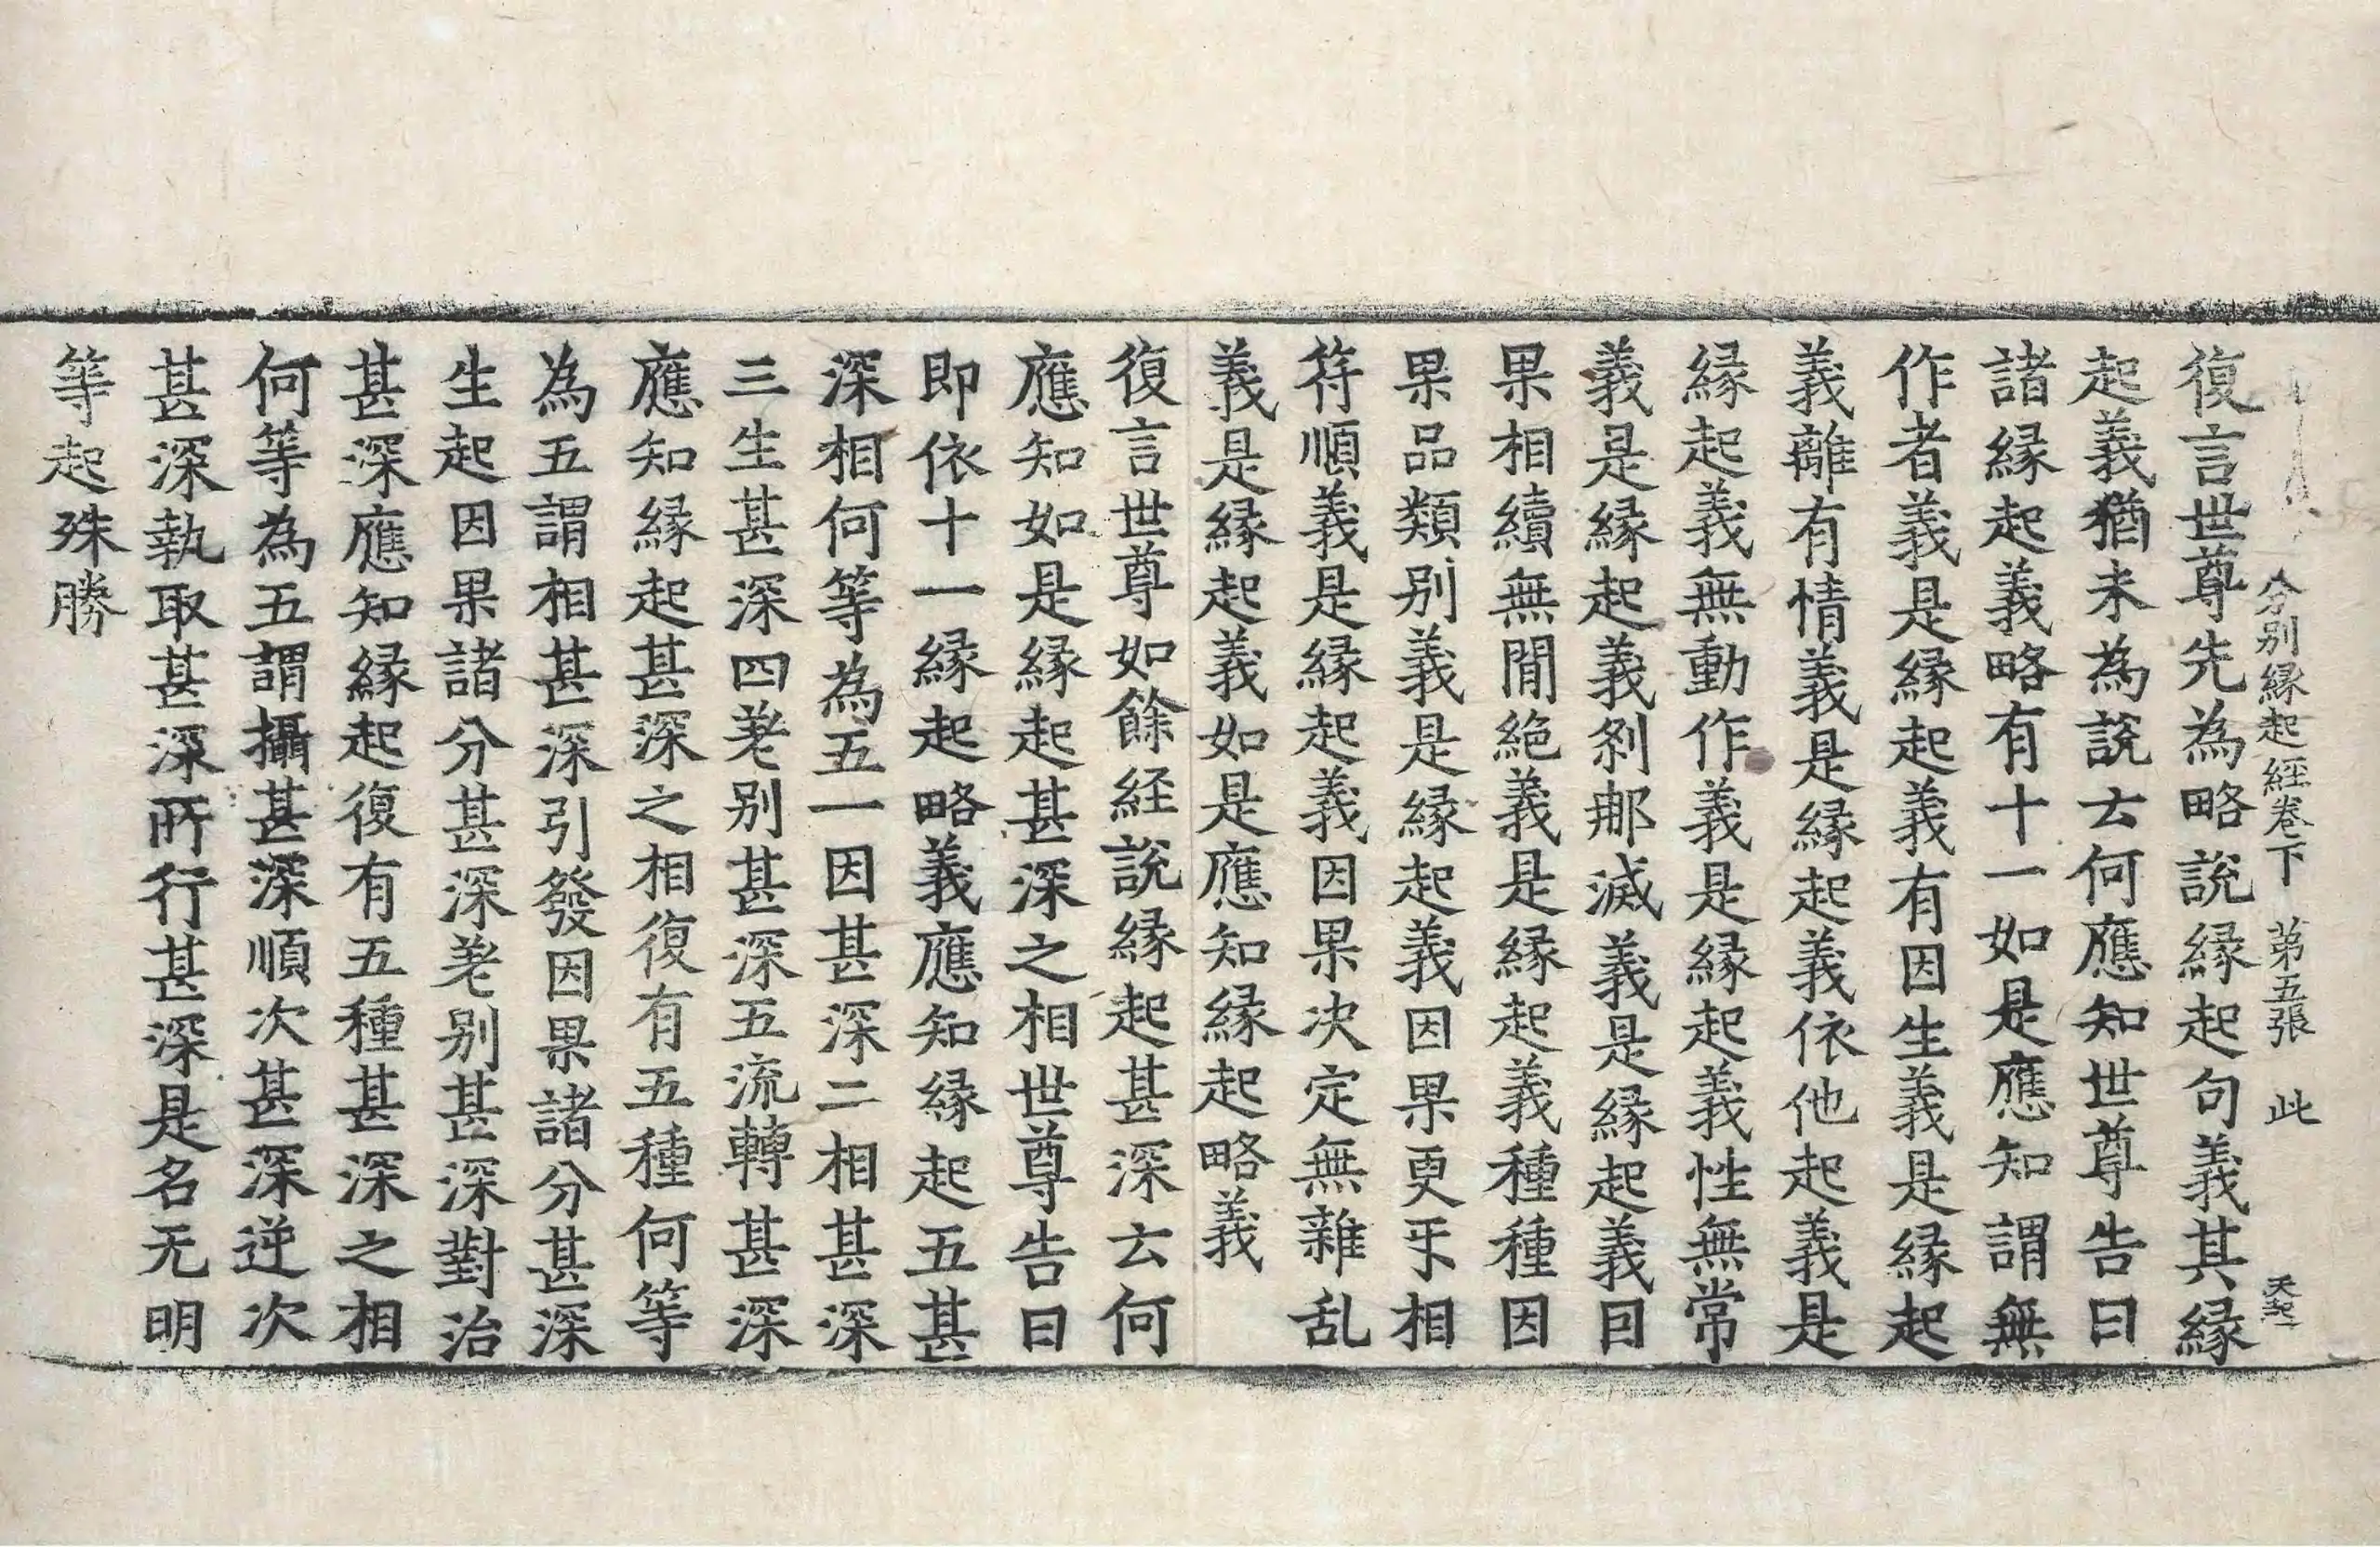 分別縁起經卷下 第五張 此 天起
復言世尊先為略說縁起句義其縁
起義猶未為說云何應知世尊告曰
諸縁起義略有十一如是應知謂無
作者義是縁起義有因生義是縁起
義離有情義是縁起義依他起義是
縁起義無動作義是縁起義性無常
義是縁起義剎那滅義是縁起義因
果相續無間絶義是縁起義種種因
果品類別義是縁起義因果更㸦相
符順義是縁起義因果决定無雜乱
義是縁起義如是應知縁起略義
復言世尊如餘経說縁起甚深云何
應知如是縁起甚深之相世尊告曰
即依十一縁起略義應知縁起五甚
深相何等為五一因甚深二相甚深
三生甚深四差別甚深五流轉甚深
應知縁起甚深之相復有五種何等
為五謂相甚深引發因果諸分甚深
生起因果諸分甚深差別甚深對治
甚深應知縁起復有五種甚深之相
何等為五謂攝甚深順次甚深逆次
甚深執取甚深所行甚深是名无明
等起殊勝